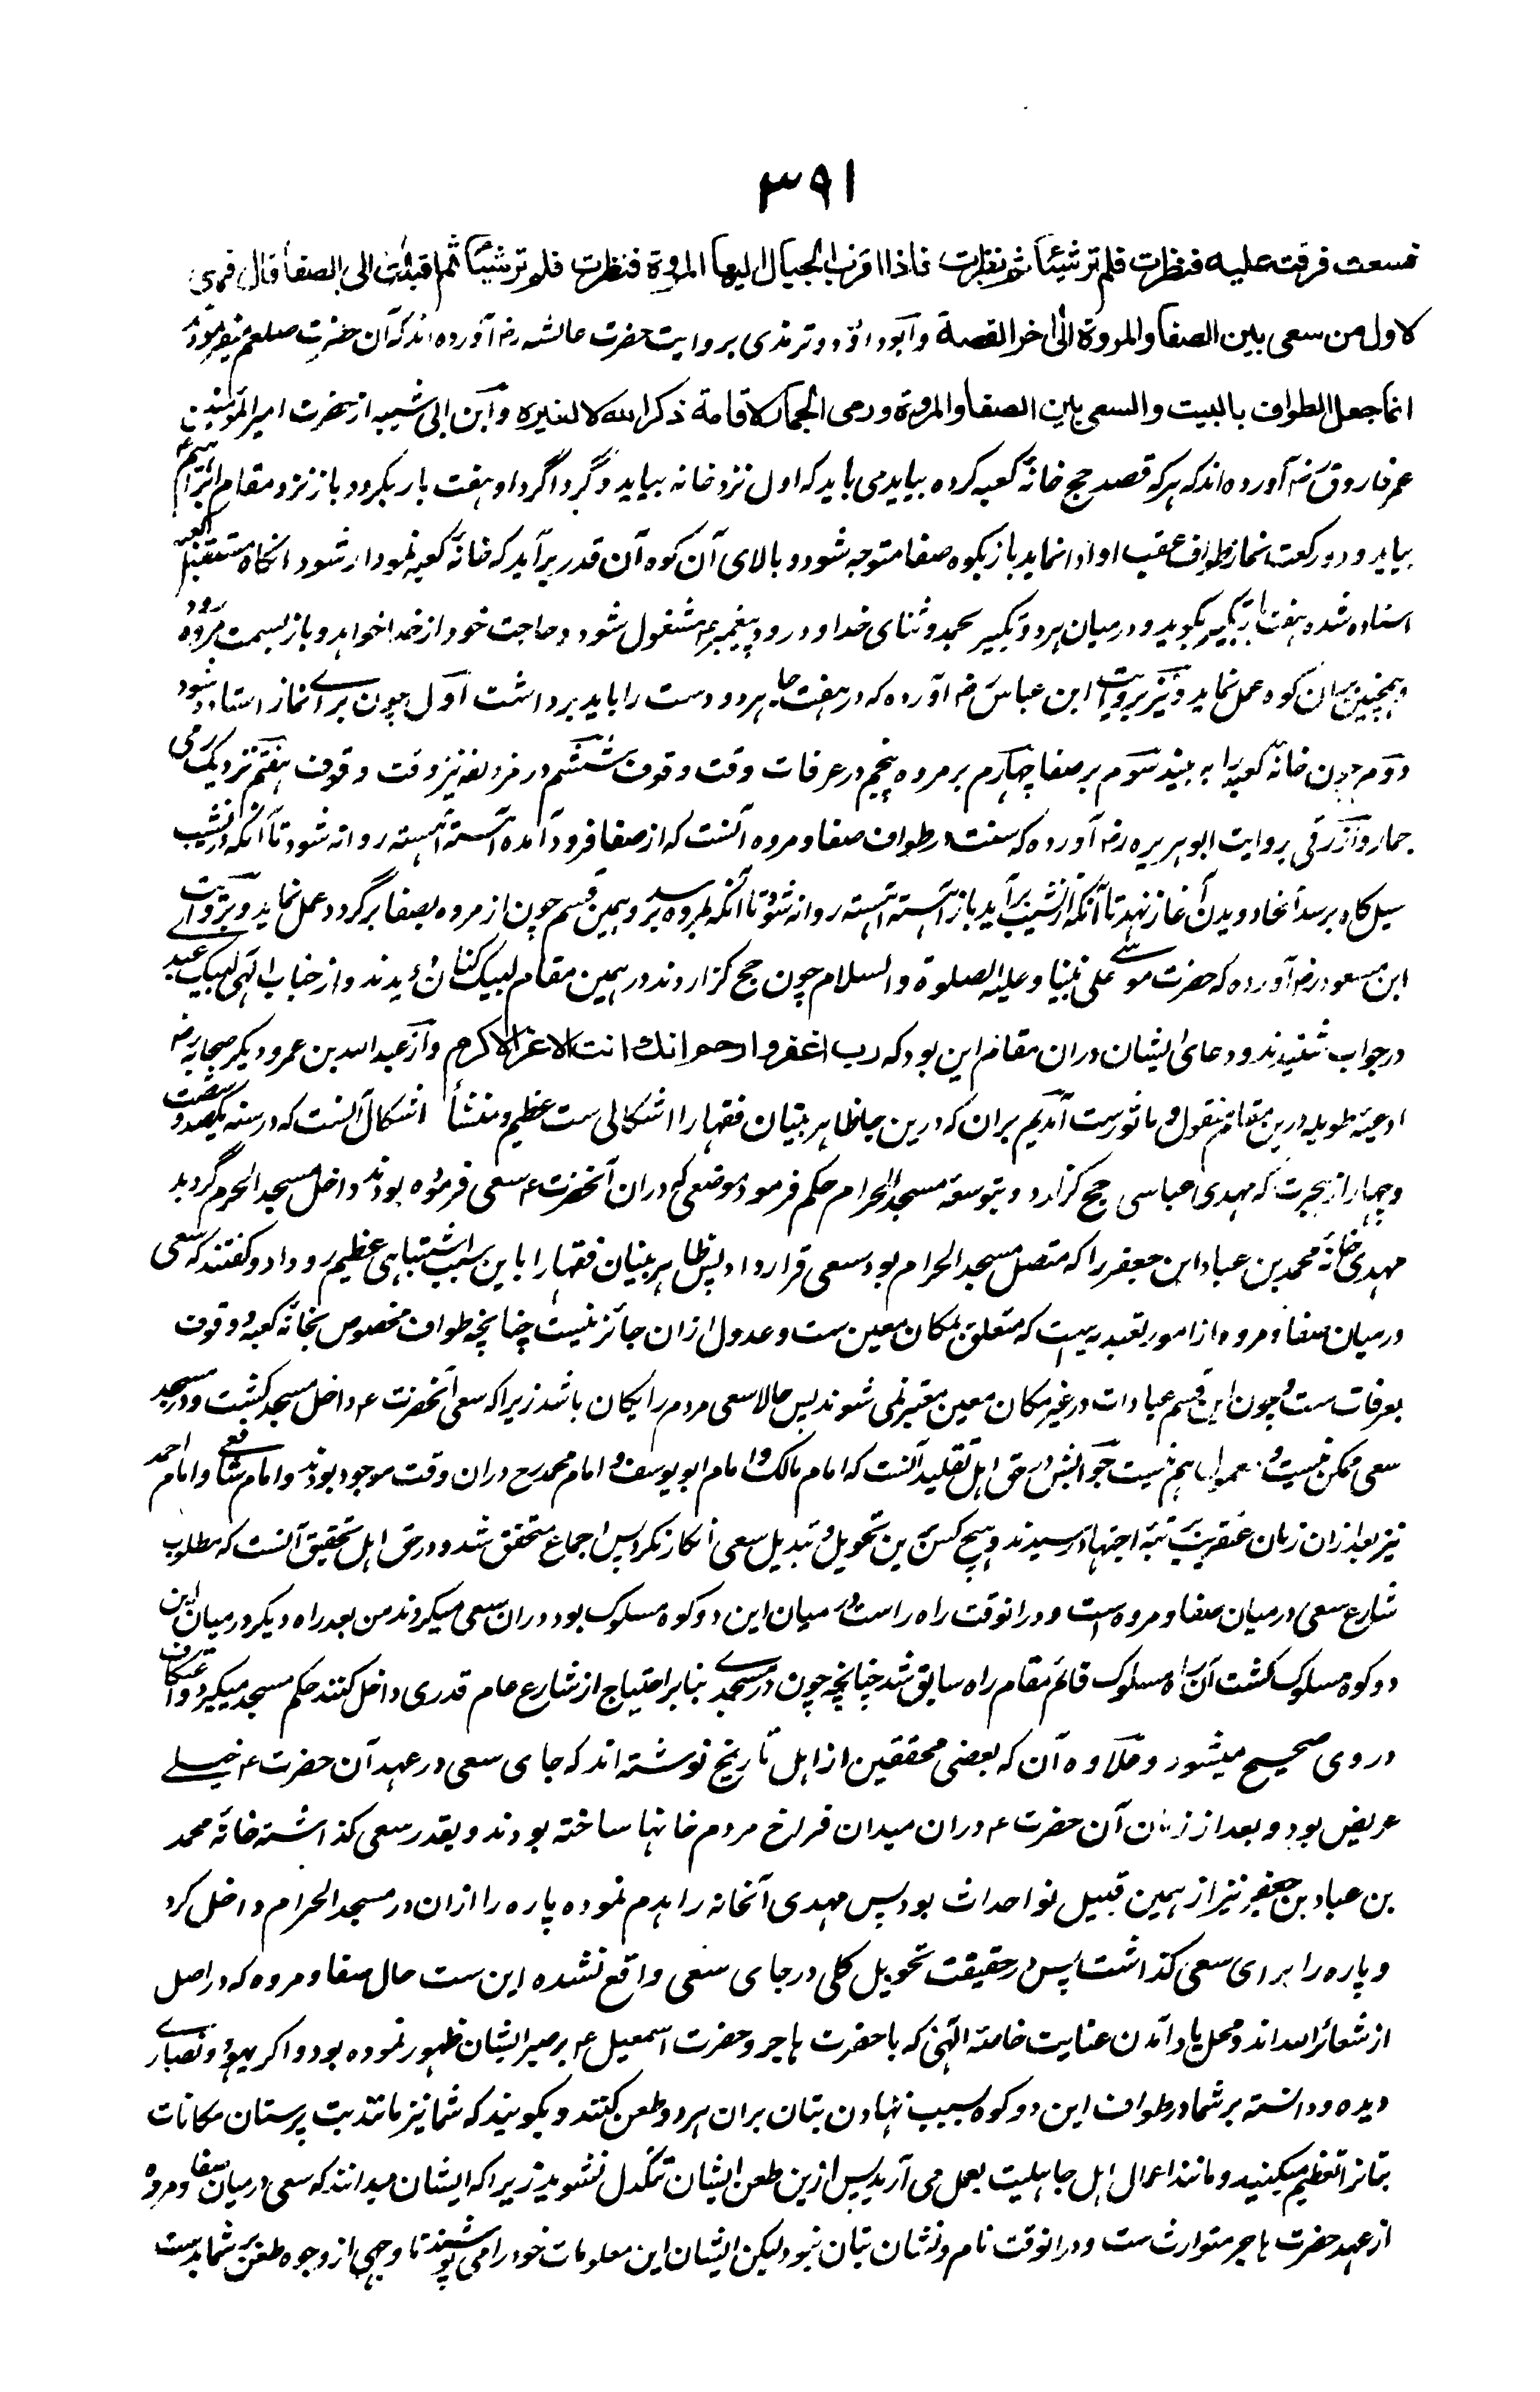 ۳۹۱
فسعت فرقت علیه فنظرت فلم تر شیئا ثم نظرت فاذا اقرب الجبال الیها المروة فنظرت فلم تر شیئا ثم اقبلت الی الصفا قال فهی
لاول من سعی بین الصفا والمروة الی اخر القصة و ابوداؤد و ترمذی بروایت حضرت عائشه رض آورده اند که آن حضرت صلعم میفرمودند
انما جعل الطواف بالبیت والسعی بین الصفا والمروة ورمی الجمار لاقامة ذکر الله لا لغیره و ابن ابی شیبه از حضرت امیر المؤمنین
عمر فاروق رض آورده اند که هر که قصد حج خانهٔ کعبه کرده بیاید می باید که اول نزد خانه بیاید و گرداگرد او هفت بار بگردد باز نزد مقام ابراهیم ع
بیاید و دو رکعت نماز طواف عقب او ادا نماید باز بکوه صفا متوجه شود و بالای آن کوه آن قدر برآید که خانهٔ کعبه نمودار شود انگاه مستقبل کعبه
استاده شده هفت بار تکبیر بگوید و در میان هر دو تکبیر بحمد و ثنای خدا و درود پیغمبر ع مشغول شود و حاجت خود از خدا خواهد و باز بسمت مروه رود
و همچنین بر آن کوه عمل نماید و نیز بروایت ابن عباس رض آورده که در هفت جا هر دو دست را باید برداشت اول چون برای نماز استاده شود
دوم چون خانهٔ کعبه را به بیند سوم بر صفا چهارم بر مروه پنجم در عرفات وقت وقوف ششم در مزدلفه نیز وقت وقوف هفتم نزدیک رمی
جمار و ازرقی بروایت ابو هریره رض آورده که سنت در طواف صفا و مروه آنست که از صفا فرود آمده آهسته آهسته روانه شود تا آنکه در نشیب
سیل گاه برسد آنجا دویدن آغاز نهد تا آنکه از نشیب برآید باز آهسته آهسته روانه شود تا آنکه بمروه برسد و همین قسم چون از مروه بصفا برگردد عمل نماید و بروایت
ابن مسعود رض آورده که حضرت موسی علی نبینا و علیه الصلوة والسلام چون حج گزاردند در همین مقام لبیک کنان دویدند و از جناب الهی لبیک عبدی
در جواب شنیدند و دعای ایشان دران مقام این بود که رب اغفر وارحم انك انت الاعز الاکرم و از عبد الله بن عمر و دیگر صحابه رض
ادعیهٔ طویله درین مقام منقول و ماثور است آمدیم بران که درین جا ظاهر بینان فقها را اشکالی ست عظیم و منشأ اشکال آنست که در سنه یکصد و شصت
و چهار از هجرت که مهدی عباسی حج گزارد و بتوسعهٔ مسجد الحرام حکم فرمود موضعی که دران آنحضرت ع سعی فرموده بودند داخل مسجد الحرام گردید
مهدی خانهٔ محمد بن عباد ابن جعفر را که متصل مسجد الحرام بود مسعی قرار داد پس ظاهر بینان فقها را باین سبب اشتباهی عظیم رو داد و گفتند که سعی
در میان صفا و مروه از امور تعبدیه ایست که متعلق بمکان معین ست و عدول ازان جائز نیست چنانچه طواف مخصوص بخانهٔ کعبه و وقوف
بعرفات ست و چون این قسم عبادات در غیر مکان معین معتبر نمی شوند پس حالا سعی مردم رایگان باشد زیرا که مسعی آنحضرت ع داخل مسجد گشت و در مسجد
سعی ممکن نیست و معمول هم نیست جوابش در حق اهل تقلید آنست که امام مالک و امام ابو یوسف و امام محمد رح دران وقت موجود بودند و امام شافعی و امام احمد
نیز بعد ازان زمان عنقریب برتبهٔ اجتهاد رسیدند و هیچ کس برین تحویل و تبدیل مسعی انکار نکرد پس اجماع متحقق شد و در حق اهل تحقیق آنست که مطلوب
شارع سعی در میان صفا و مروه است و در انوقت راه راست در میان این دو کوه مسلوک بود دران سعی میکردند من بعد راه دیگر در میان این
دو کوه مسلوک گشت آن راه مسلوک قائم مقام راه سابق شد چنانچه چون در مسجدی بنا بر احتیاج از شارع عام قدری داخل کنند حکم مسجد میگیرد و اعتکاف
در وی صحیح میشود و علاوه آن که بعضی محققین از اهل تاریخ نوشته اند که جای سعی در عهد آن حضرت ع خیلے
عریض بود و بعد از زمان آن حضرت ع دران میدان فراخ مردم خانها ساخته بودند و بقدر سعی گذاشته خانهٔ محمد
بن عباد بن جعفر نیز از همین قبیل نو احداث بود پس مهدی آنخانه را هدم نموده پاره را ازان در مسجد الحرام داخل کرد
و پاره را برای سعی گذاشت پس در حقیقت تحویل کلی در جای سعی واقع نشده این ست حال صفا و مروه که در اصل
از شعائر الله اند و محل یاد آمدن عنایت خاصهٔ الهی که با حضرت هاجر و حضرت اسمعیل ع بر صبر ایشان ظهور نموده بود و اگر یهود و نصارے
دیده و دانسته بر شما در طواف این دو کوه بسبب نهادن بتان بران هر دو طعن کنند و بگویند که شما نیز مانند بت پرستان مکانات
بتانرا تعظیم میکنید و مانند اعمال اهل جاهلیت بعمل می آرید پس ازین طعن ایشان تنگدل نشوید زیرا که ایشان میدانند که سعی در میان صفا و مروه
از عهد حضرت هاجر متوارث ست و در انوقت نام و نشان بتان نبود لیکن ایشان این معلومات خود را می پوشند تا وجهی از وجوه طعن بر شما بدست